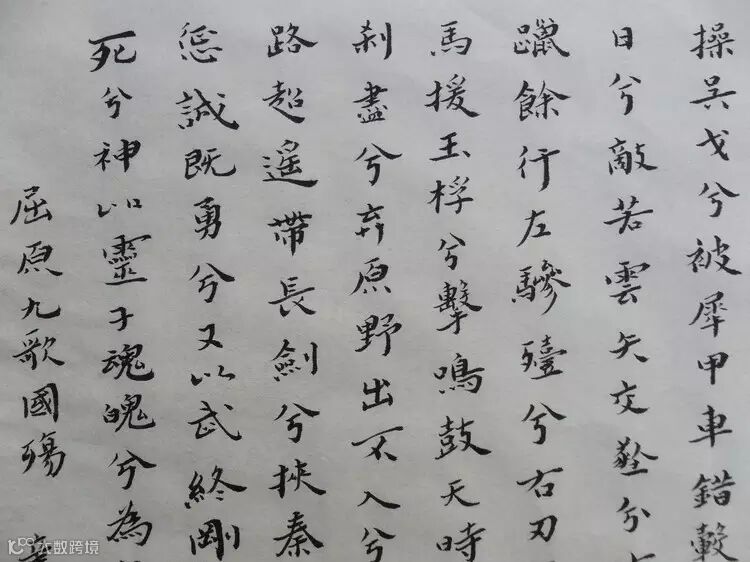 操吳戈兮被犀甲車錯轂
日兮敵若雲矢交墜兮
躐餘行左驂殪兮右刃
馬援玉桴兮擊鳴鼓天時
剎盡兮弃原野出不入兮
路超遥帶長劍兮挾秦
惩誠既勇兮又以武終剛
死兮神以靈子魂魄兮為
屈原九歌國殤
大数跨境